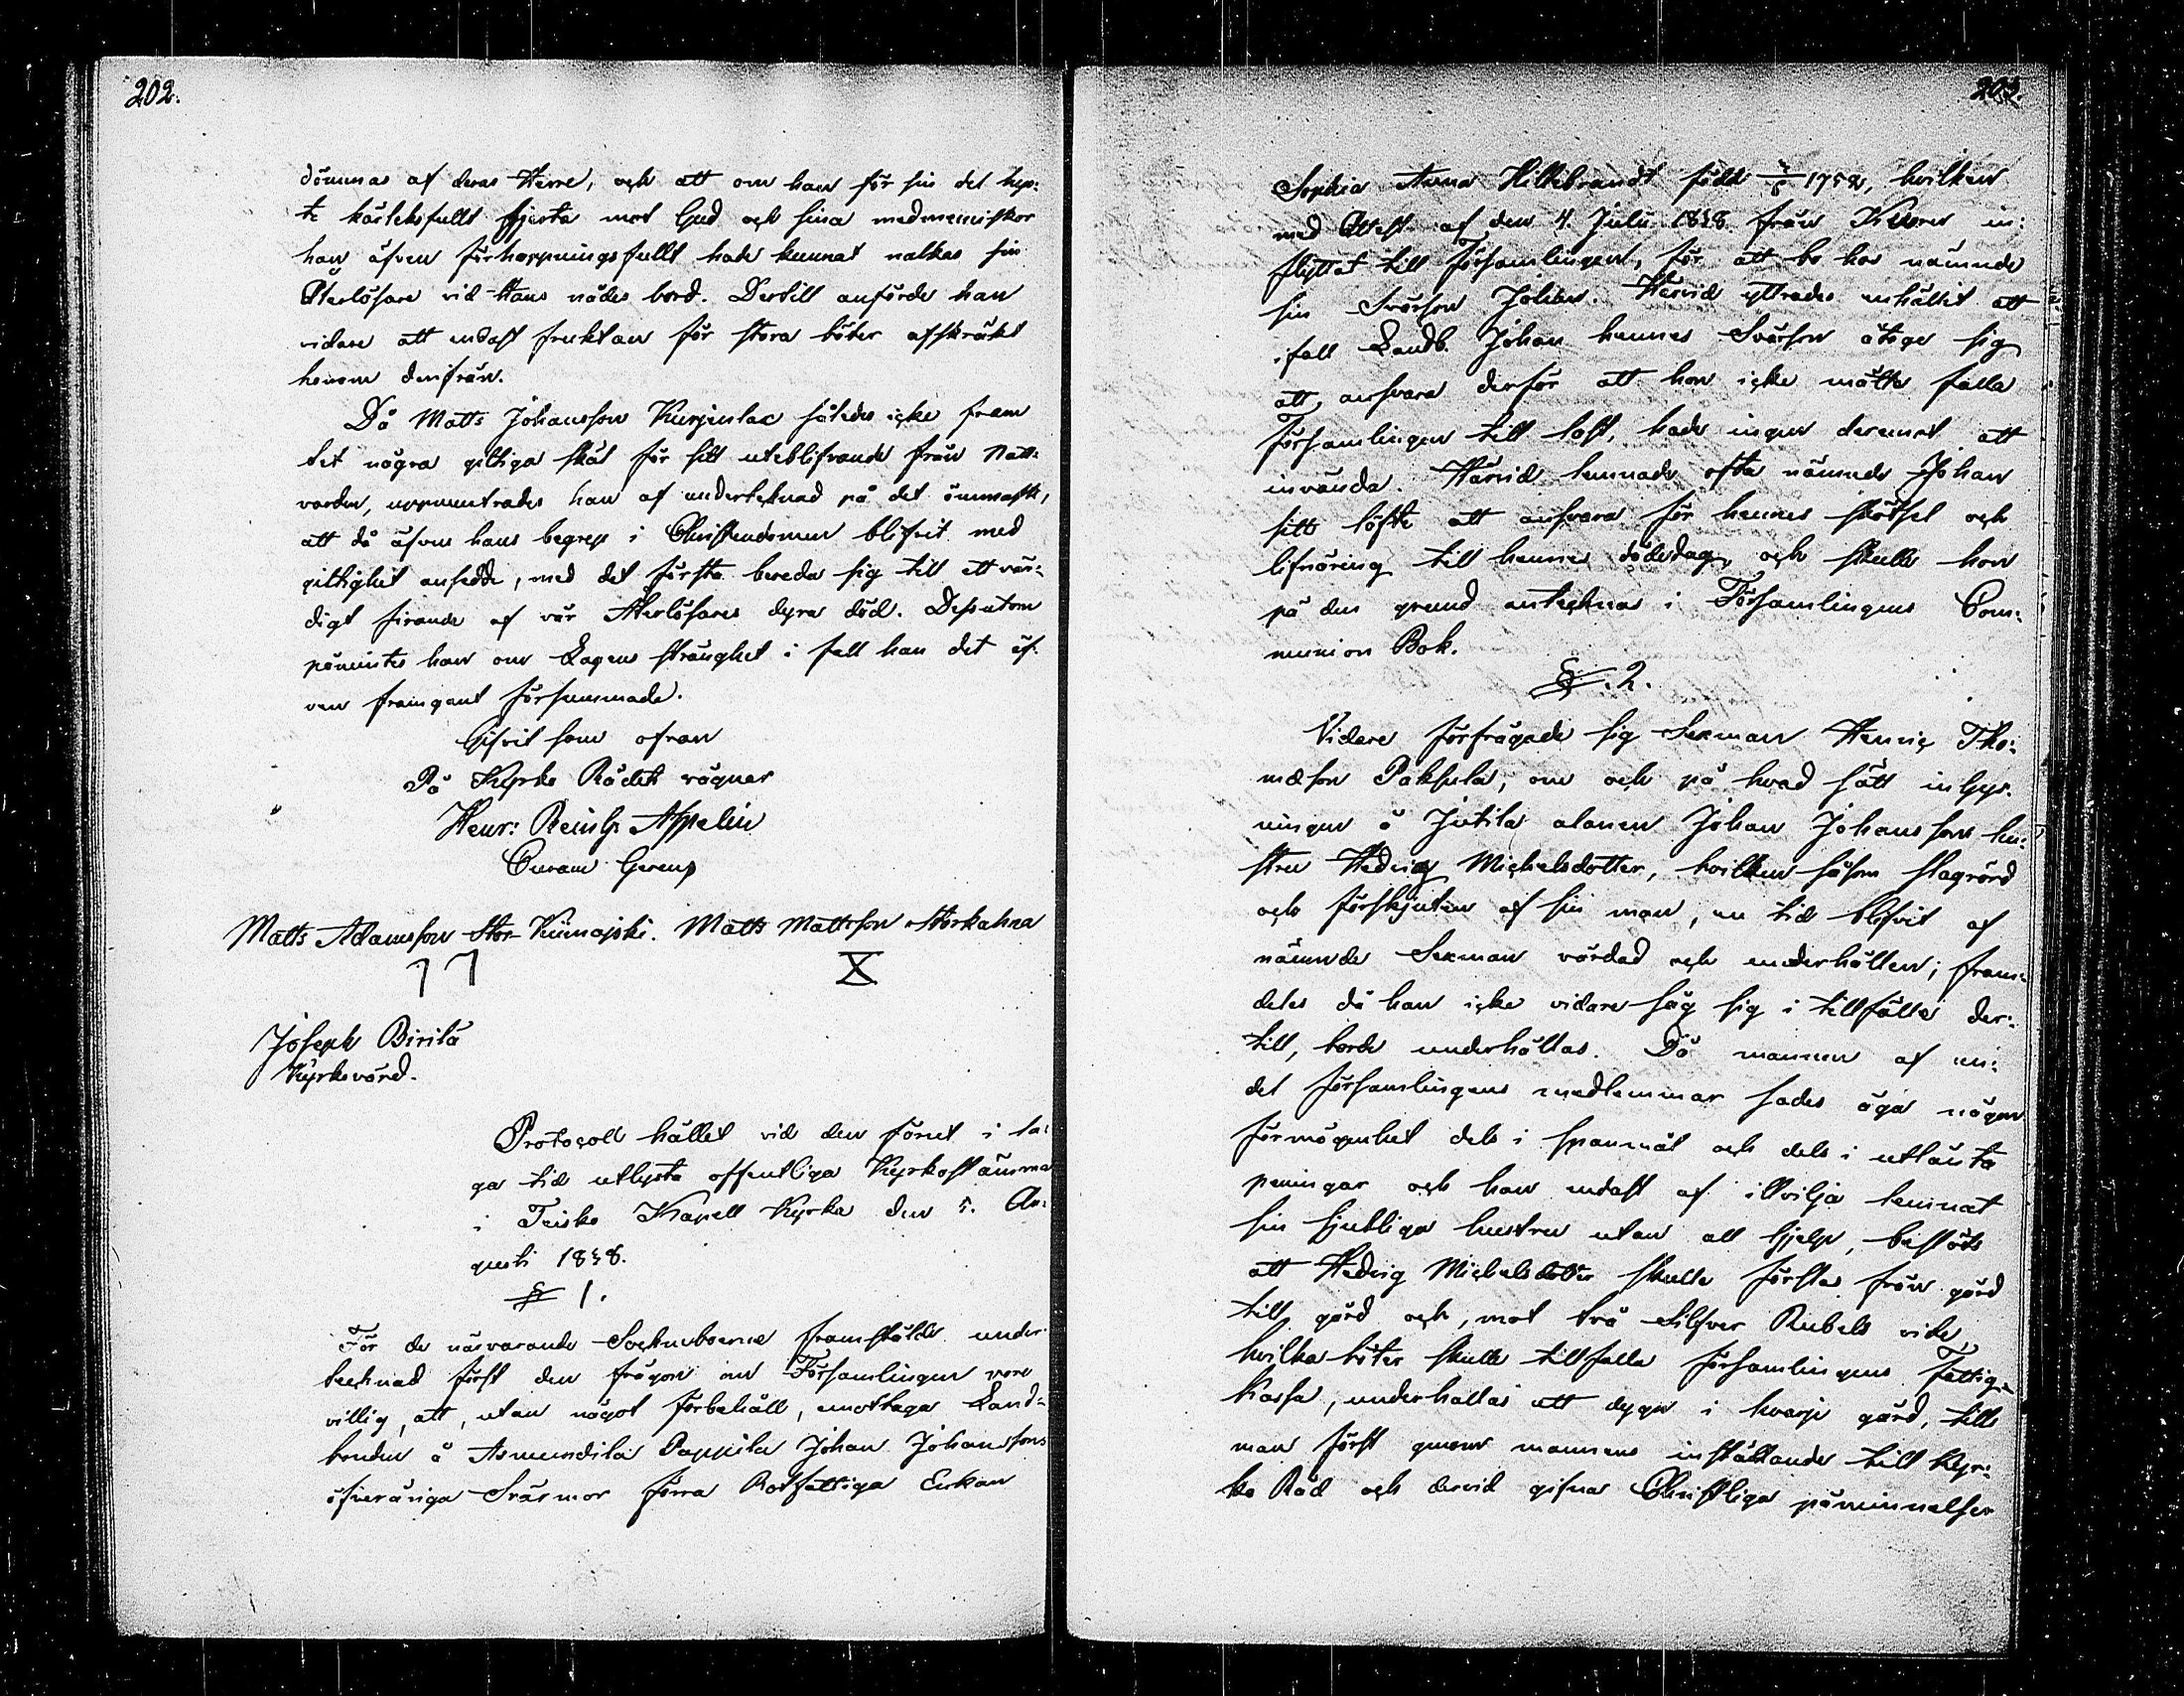 202.
dömmas af deras Herre, och att om han för sin del hys:
te kärleksfullt hjerta mot Gud och sina medmenniskor
han äfven förhoppningsfullt hade kunnat nalkas sin
Återlösare vid Hans nådes bord. Dertill anförde han
vidare att endast fruktan för stora böter afskräkt
honom derifrån.
Då Matts Johansson Kurjenlax således icke fram
bet några giltiga skäl för sitt uteblifvande från Natt:
varden, uppmuntrades han af undertecknad på det ömmaste,
att då äfven hans begrep i Christendomen blifvit med
giltighet ansedde, med det första bereda sig till ett vär:
digt firande af vår Återlösares dyra död. Dessutom
påmintes han om Lagens stränghet i fall han det äf:
ven framgent försummade.
Gifvit som ofvan
På Kyrko Rådets vägnar
Henr: Reinh: Appelin
Curam Gerens
Matts Adamsson Stor-Kuimajski. Matts Mattsson Storkahra
77 X
Joseph Birilä
Kyrkovärd.
Protocoll hållet vid den förut i la:
ga tid utlysta offentliga Kyrkostämma
i Teisko Kapell Kyrka den 5. Au:
gusti 1838.
§ 1.
För de närvarande Socknboerne framstälde under
tecknad först den frågan om Församlingen vore
villig, att, utan något förbehåll, emottaga Land-
bonden å Asmundila Pappila Johan Johanssons
öfveråriga Svärmor förra Rotfattiga Enkan
203.
Sophia Anna Hiltebrandt född 1758, hvilken
med Attest af den 4. Julii 1838 från in:
flyttat till Församlingen, för att bo hos nämnde
sin Svärson Johan. Härvid yttrades enhälligt att
ifall Landb. Johan hennes Svärson åtager sig
att ansvara derför att hon icke måtte falla
Församlingen till last, hade ingen deremot att
invända. Härvid lemnade ofta nämnde Johan
sitt löfte att ansvara för hennes skötsel och
lifnäring till hennes dödedag, och skulle hon
på den grund antecknas i Församlingens Com:
munion Bok.
§. 2.
Vidare förfrågade sig Sexman Henric Tho:
mæson Pakkula, om och på hvad sätt inhys:
ningen å Jutila alanen Johan Johanssons hu:
stru Hedvig Michelsdotter, hvilken såsom slagrörd
och förskjuten af sin man, en tid blifvit af
nämnde Sexman vårdad och underhållen; fram:
deles då han icke vidare såg sig i tillfälle der:
till, borde underhållas. Då mannen af en:
del församlingens medlemmar sades äga någon
förmögenhet dels i spannmål och dels i utlånta
peningar och han endast af illvilja lemnat
sin sjukliga hustru utan all hjelp, beslöts
att Hedvig Michelsdotter skulle förslas från gård
till gård och, mot två Silfver Rubels vite,
hvilka böter skulle tillfalla församlingens Fattig-
Kassa, underhållas ett dygn i hvarje gård, tills
man först genom mannens inställande till Kyr:
ko Råd och dervid gifna Christliga påminnelser